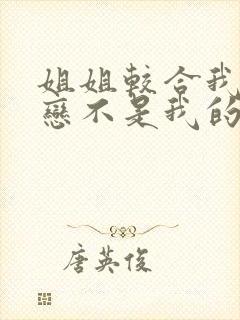 姐姐較合我
戀不是我的
唐英俊